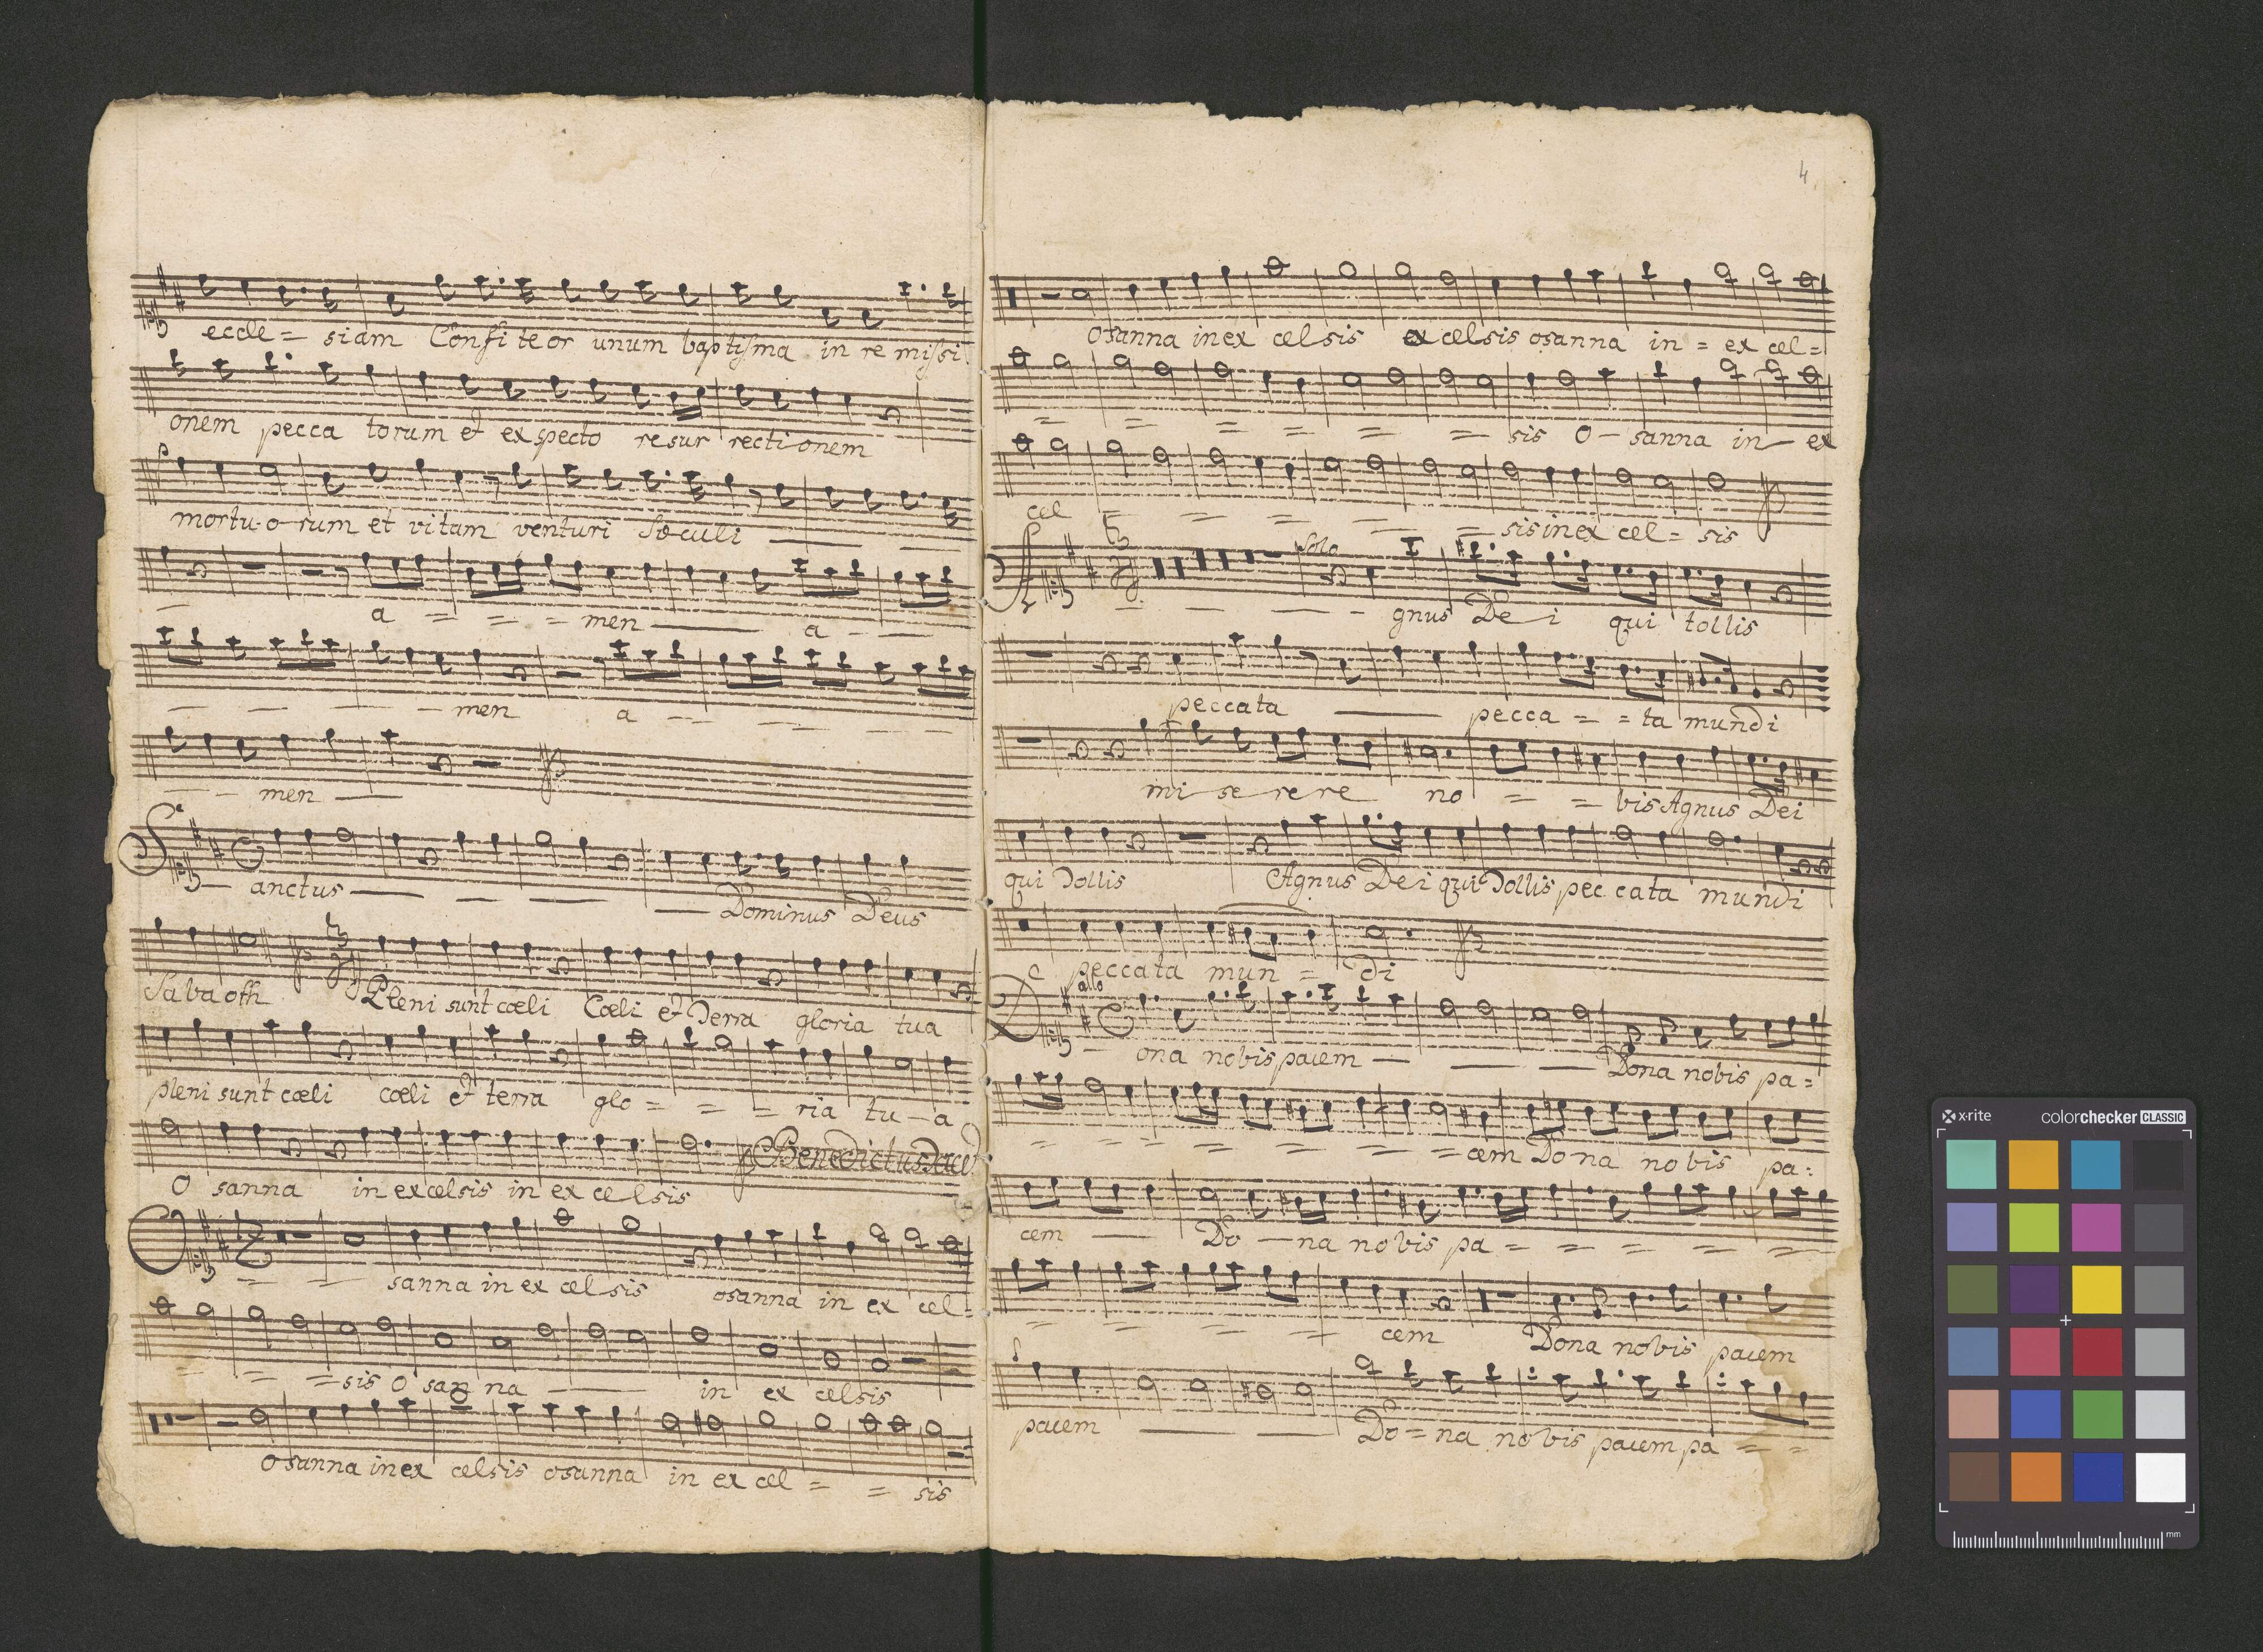 eccle = siam Confiteor unum baptisma in remissi
onem pecca torum et exspecto resur rectionem
mortu-o-rum et vitam venturi Sæculi
a = = = men a
men a
men
Sanctus Dominus Deus
Sabaoth Pleni sunt cœli Cœli et Terra gloria tua
pleni sunt cœli cœli et terra glo = = = ria tu-a
O sanna in excelsis in excelsis Benedictus
O = = sanna in ex celsis osanna in ex cel =
= = = sis O san na in ex celsis
Osanna in ex celsis osanna in ex cel = = sis
4
Osanna in ex celsis ex celsis osanna in = ex cel =
= = = = = = sis O - sanna in - ex
cel = = = = = sis in ex cel = sis
Solo
A gnus De i qui tollis
peccata pecca = = ta mundi
mi se re re no = = bis Agnus Dei
qui Tollis Agnus Dei qui Tollis pec cata mundi
peccata mun = di
allo
Dona nobis pacem Dona nobis pa =
= = = = = = = cem Dona nobis pa:
cem Do - na nobis pa = = = = =
= = = = = cem Dona nobis pacem
pacem Do = na nobis pacem pa = =
x-rite colorchecker CLASSIC
mm